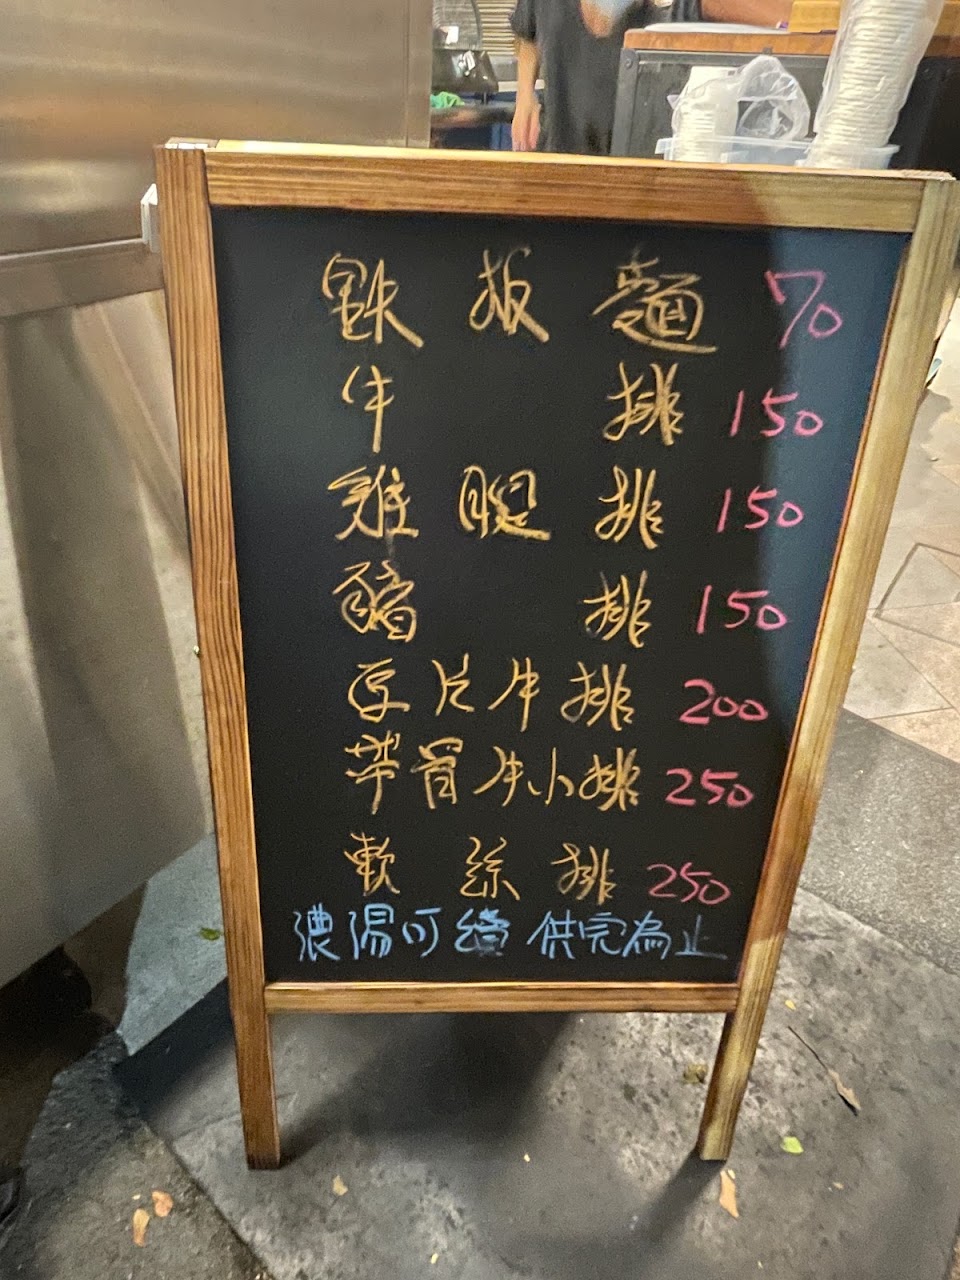 鉄板麵 70
牛排 150
雞腿排 150
豬排 150
豆片牛排 200
帶骨牛小排 250
軟絲排 250
濃湯可續 供完為止